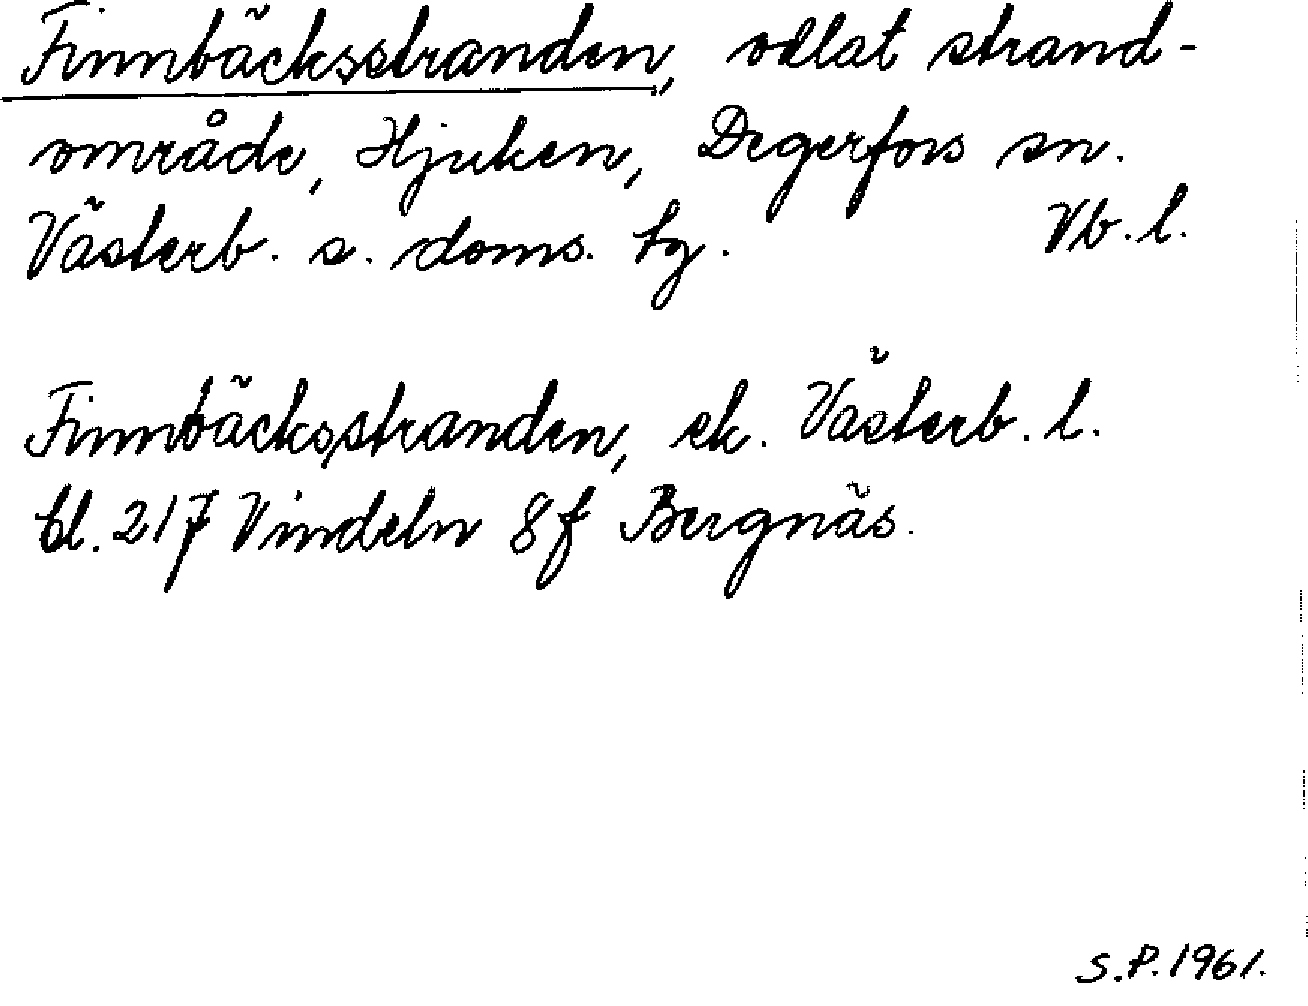 Finnbäcksstranden, odlat strand-
område, Hjuken, Degerfors sn.
Västerb. s. doms. tg. Vb. l.
Finnbäcksstranden, ek. Västerb. l.
bl. 217 Vindeln 8f Bergnäs.
S.P. 1961.